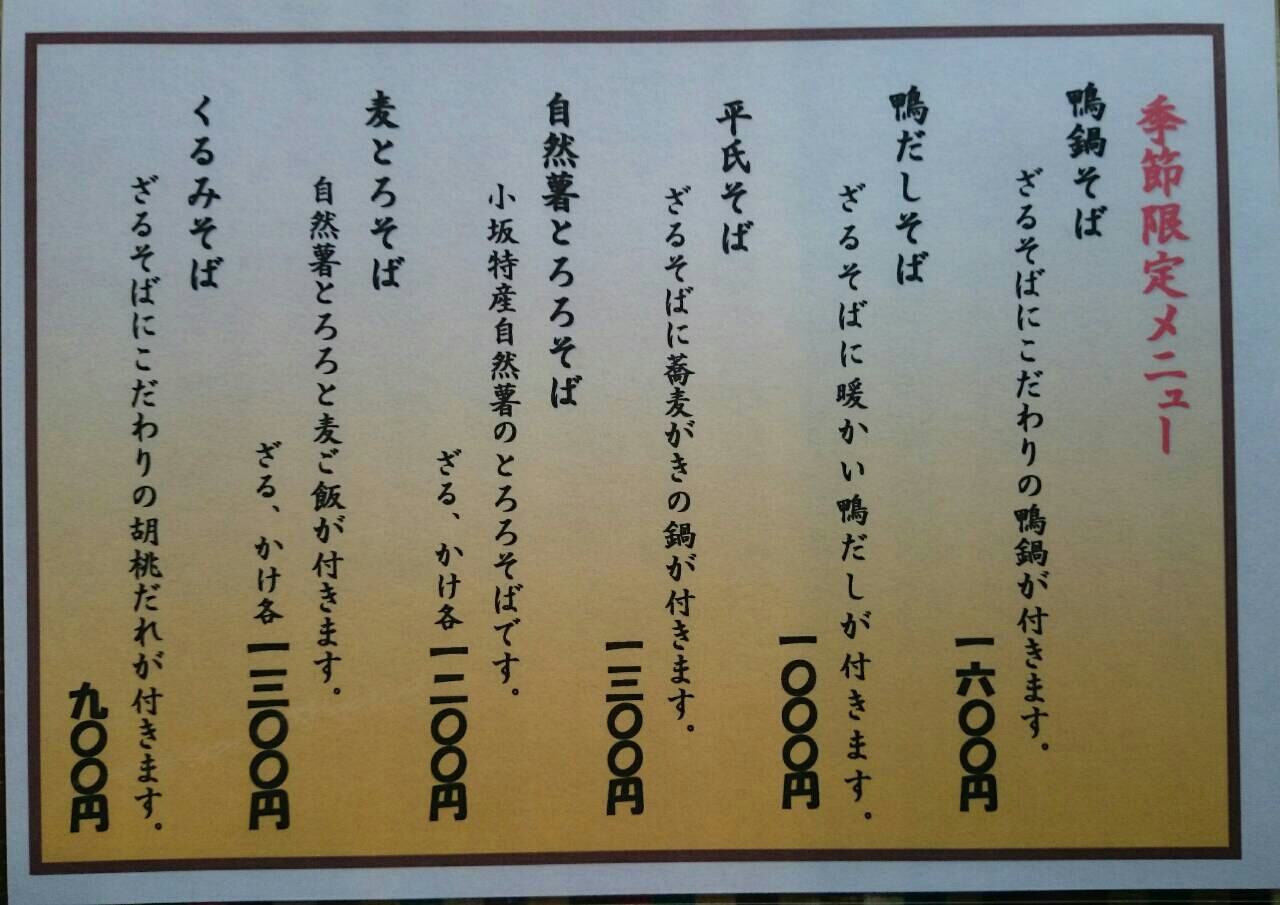 季節限定メニュー
鴨鍋そば
ざるそばにこだわりの鴨鍋が付きます。
一六〇〇円
鴨だしそば
ざるそばに暖かい鴨だしが付きます。
一〇〇〇円
平氏そば
ざるそばに蕎麦がきの鍋が付きます。
一三〇〇円
自然薯とろろそば
小坂特産自然薯のとろろそばです。
ざる、かけ各一二〇〇円
麦とろそば
自然薯とろろと麦ご飯が付きます。
ざる、かけ各一三〇〇円
くるみそば
ざるそばにこだわりの胡桃だれが付きます。
九〇〇円